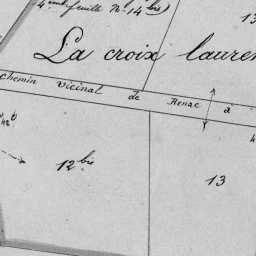 4eme feuille No 14 bis)
13
La croix lauren
Chemin Vicinal de Renac a
4
12 bis
13